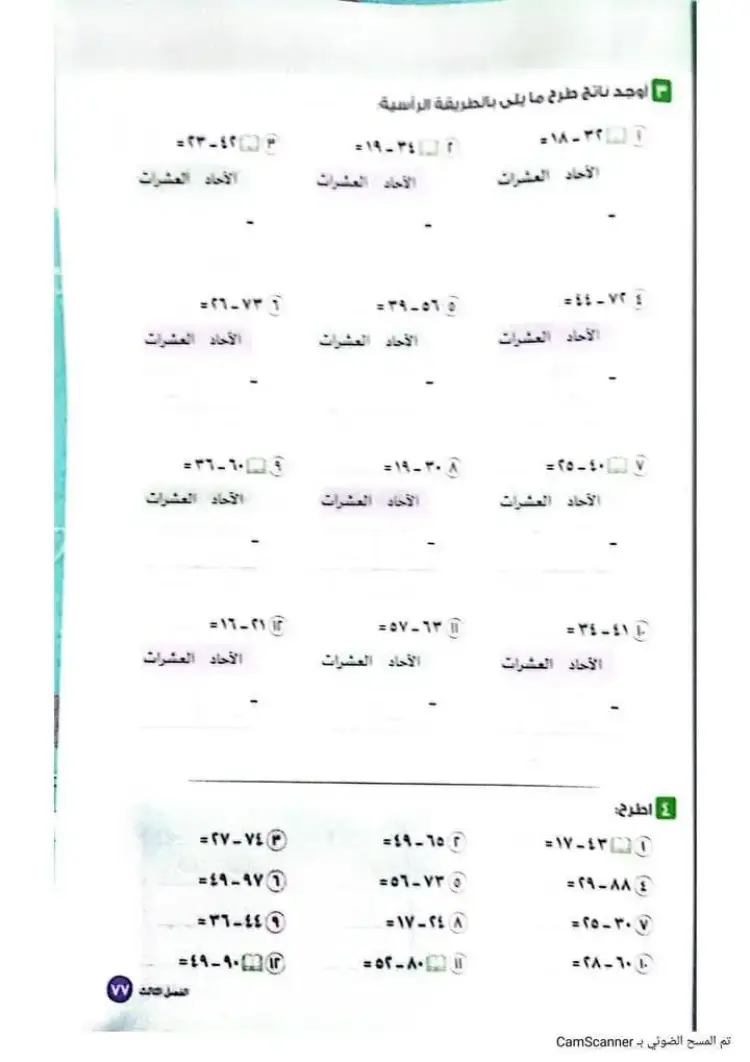 ٣ أوجد ناتج طرح ما يلى بالطريقة الرأسية:
١ ٣٢ – ١٨ =
٢ ٣٤ – ١٩ =
٣ ٤٢ – ٢٣ =
الآحاد العشرات
الآحاد العشرات
الآحاد العشرات
–
–
–
٤ ٧٢ – ٤٤ =
٥ ٥٦ – ٣٩ =
٦ ٧٣ – ٢٦ =
الآحاد العشرات
الآحاد العشرات
الآحاد العشرات
–
–
–
٧ ٤٠ – ٢٥ =
٨ ٣٠ – ١٩ =
٩ ٦٠ – ٣٦ =
الآحاد العشرات
الآحاد العشرات
الآحاد العشرات
–
–
–
١٠ ٤١ – ٣٤ =
١١ ٦٣ – ٥٧ =
١٢ ٢١ – ١٦ =
الآحاد العشرات
الآحاد العشرات
الآحاد العشرات
–
–
–
٤ اطرح:
١ ٤٣ – ١٧ =
٢ ٦٥ – ٤٩ =
٣ ٧٤ – ٢٧ =
٤ ٨٨ – ٢٩ =
٥ ٧٣ – ٥٦ =
٦ ٩٧ – ٤٩ =
٧ ٣٠ – ٢٥ =
٨ ٢٤ – ١٧ =
٩ ٤٤ – ٣٦ =
١٠ ٦٠ – ٢٨ =
١١ ٨٠ – ٥٢ =
١٢ ٩٠ – ٤٩ =
الفصل الثالث ٧٧
تم المسح الضوئي بـ CamScanner